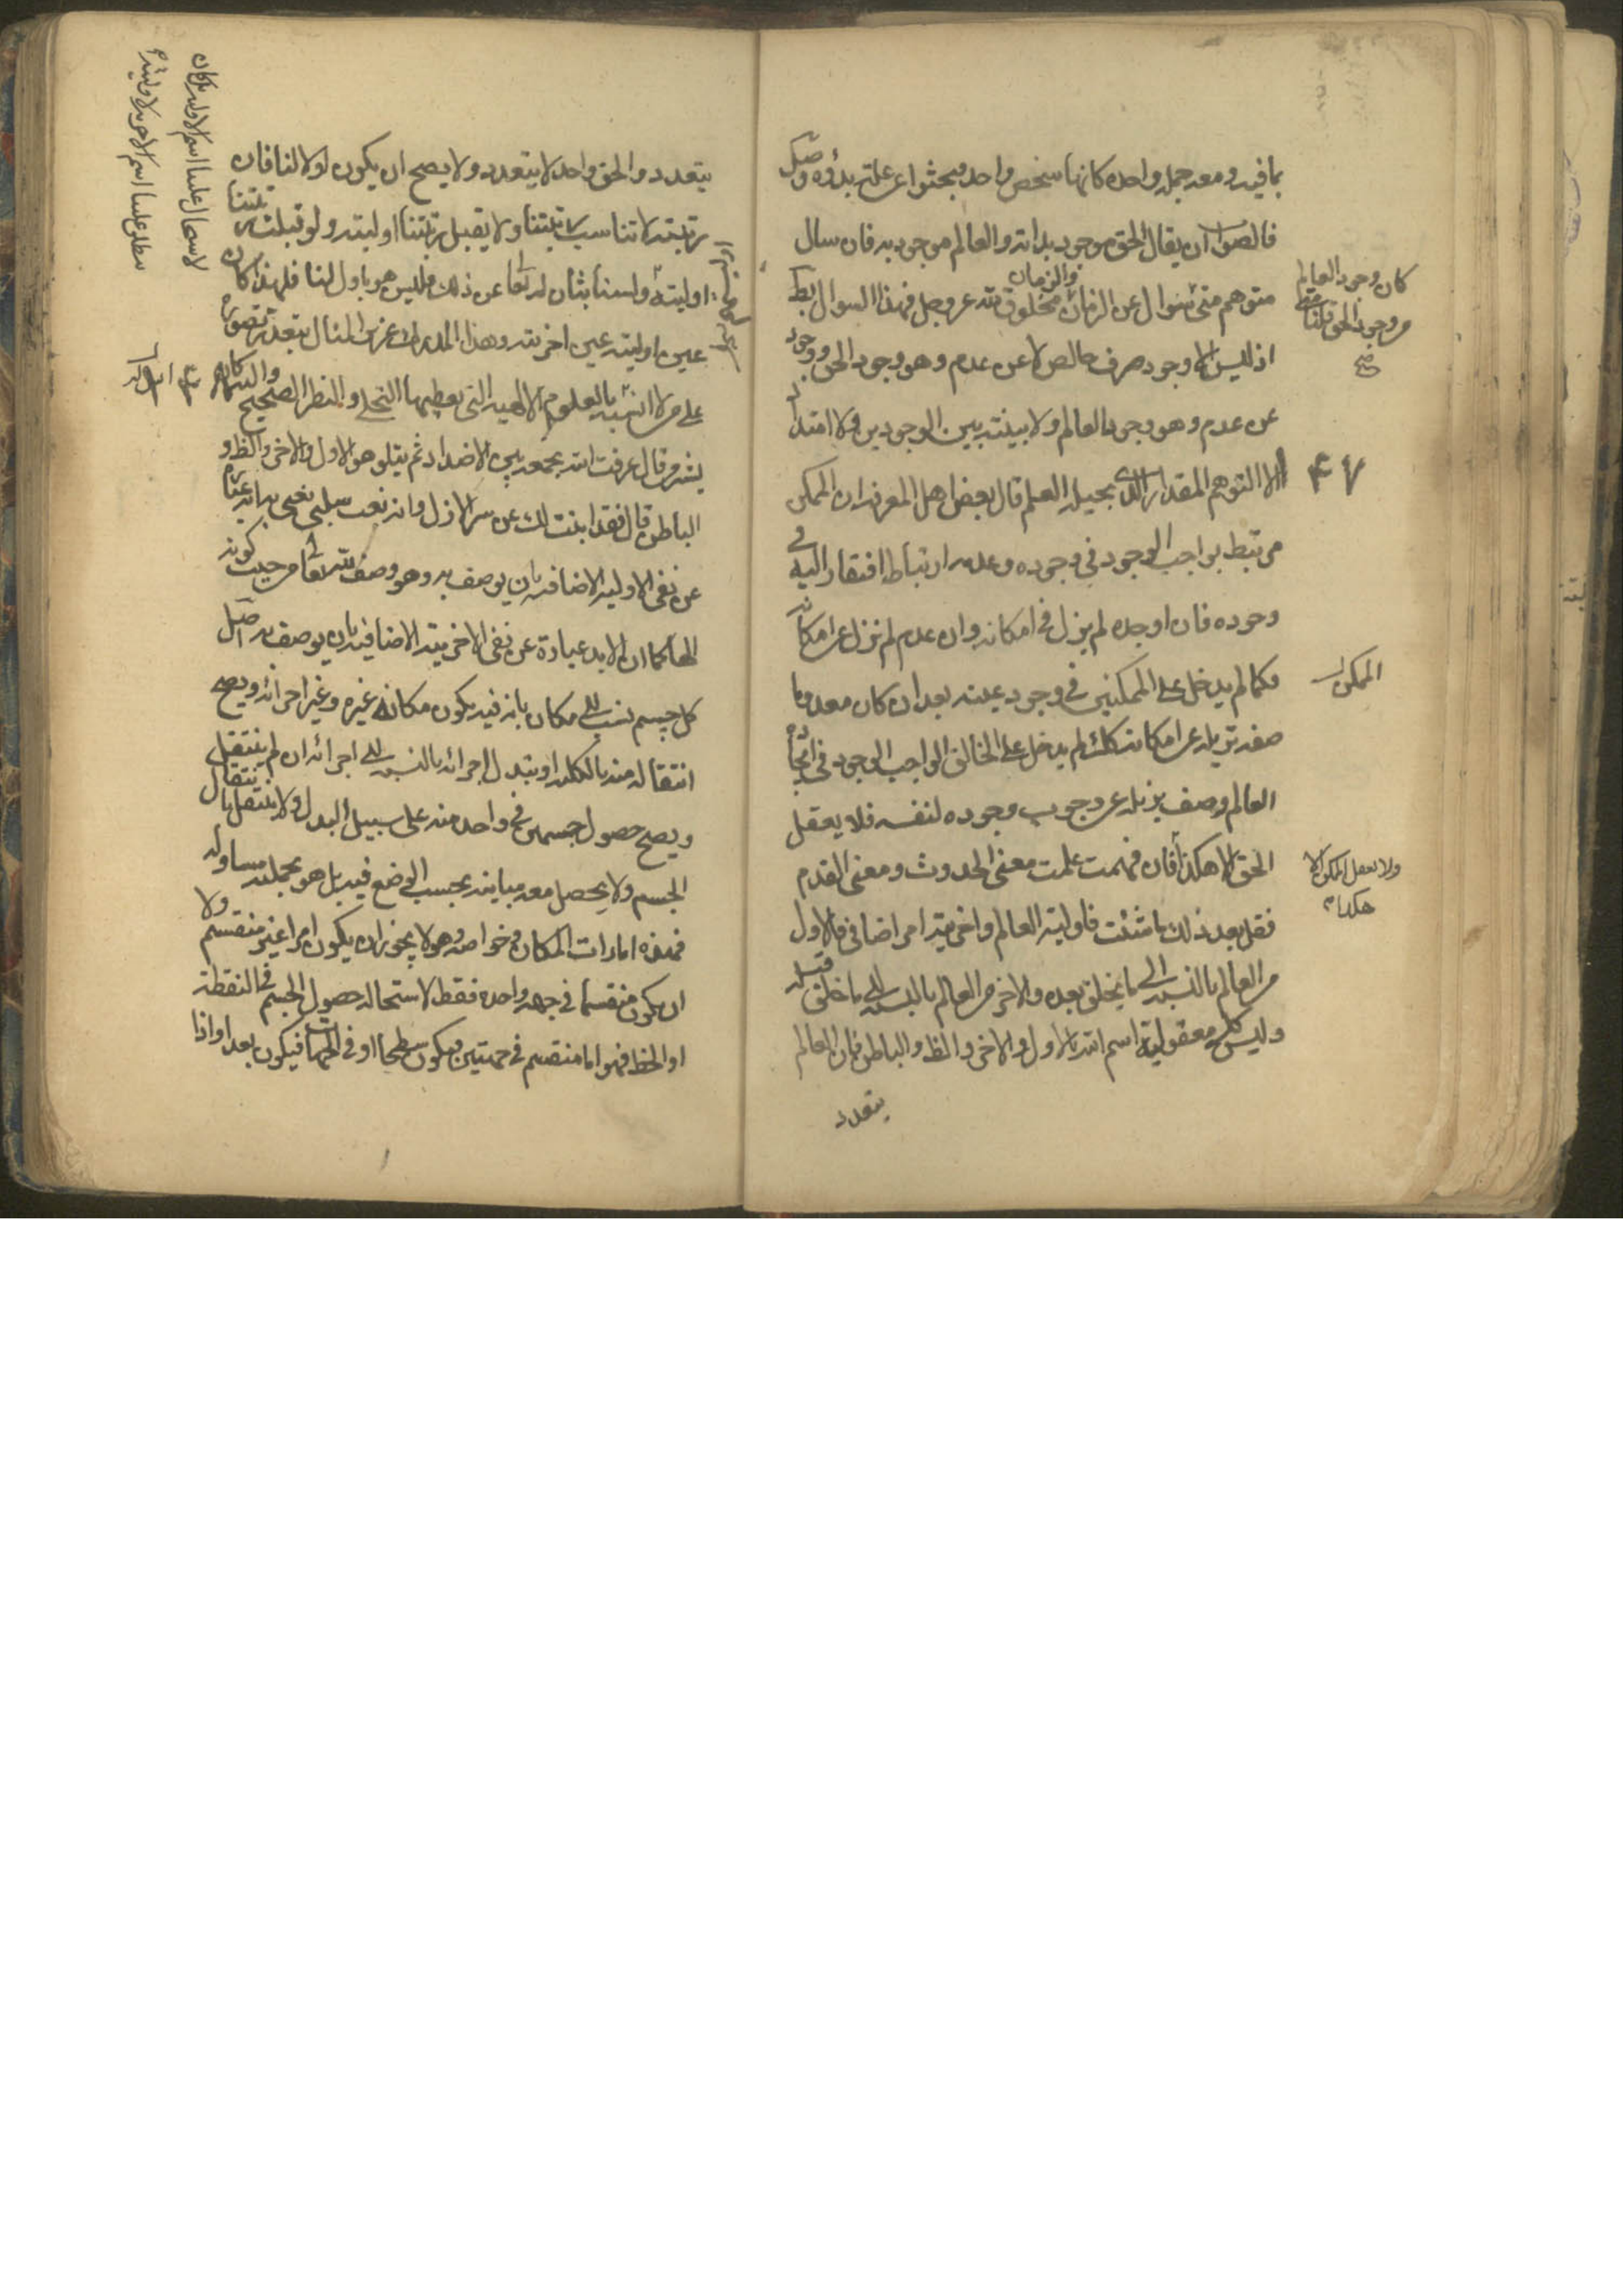 بما فيه ومعه جملة واحدة كانها شخص واحد وبحثوا عن علة بدؤه وصل
فالصواب ان يقال الحق موجود بذاته والعالم موجود به فان سال
متوهم متى سوال عن الزمان والزمان مخلوق لله عز وجل فهذا السوال بط
اذ ليس الا وجود صرف خالص لا عن عدم وهو وجود الحق ووجود
عن عدم وهو وجود العالم ولا بينية بين الوجودين ولا امتداد
الا التوهم المقدار الذي يحيله العلم قال بعض اهل المعرفة ان الممكن
مرتبط بواجب الوجود في وجوده وعدمه ارتباط افتقار اليه في
وجوده فان اوجده لم يزل في امكانه وان عدم لم يزل عن امكانه
فكما لم يدخل على الممكن في وجود عينه بعد ان كان معدوما
صفة تزيله عن امكانه كك لم يدخل على الخالق الواجب الوجود في ايجاده
العالم وصف يزيله عن وجوب وجوده لنفسه فلا يعقل
الحق الا هكذا فان فهمت علمت معنى الحدوث ومعنى القدم
فقل بعد ذلك ما شئت فاولية العالم واخريته امر اضافي فالاول
من العالم بالنسبة الى ما يخلق بعده والاخر من العالم بالنسبة الى ما خلق قبله
وليس كك معقولية اسم الله بالاول والاخر والظ والباطن فان العالم
يتعدد
كان وجود العالم
من وجود الحق قلنا متى
صح
۴۷
الممكن
ولا يعقل الممكن الا
هكذا
يتعدد والحق واحد لا يتعدد ولا يصح ان يكون اولا لنا فان
رتبته لا تناسب رتبتنا ولا تقبل رتبتنا اوليته ولو قبلت رتبتنا
اوليته ولسنا بثان له تعا عن ذلك فليس هو باول لنا فلهذا كان
عين اوليته عين اخريته وهذا المدرك عزيز المنال يتعذر تصوره
على من لا انسة له بالعلوم الالهية التي يعطيها التجلي والنظر الصحيح
يشير وقال عرفت الله بجمعه بين الاضداد ثم يتلو هو الاول والاخر والظ و
الباطن قال فقد ابنت لك عن سر الازل وانه نعت سلبي يعني به انه عبارة
عن نفي الاولية الاضافية بان يوصف به وهو وصف لله تعا من حيث كونه
الها كما ان الابد عبارة عن نفي الاخرية الاضافية بان يوصف به اصل
كل جسم نسب الى مكان بانه فيه يكون مكانه غيره وغير اجزائه ويصح
انتقاله منه بالكلية او يتبدل اجزائه بالنسبة الى اجزائه ان لم ينتقل
ويصح حصول جسمين في واحد منه على سبيل البدل ولا ينتقل بانتقال
الجسم ولا يحصل معه مباينه بحسب الوضع فيه بل هو بجملته مساو له
فهذه امارات المكان وخواصه وهو لا يجوز ان يكون امرا غير منقسم ولا
ان يكون منقسما في جهة واحدة فقط لاستحالة حصول الجسم في النقطة
او الخط فهو اما منقسم في جهتين فيكون سطحا او في الجهات فيكون بعدا واذا